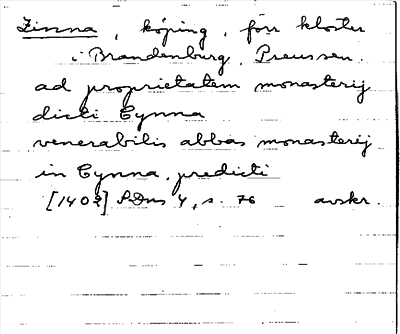 Zinna, köping, förr kloster
i Brandenburg, Preussen.
ad proprietatem monasterij
dicti Cynna
venerabilis abbas monasterij
in Cynna, predicti
[1402] SDns 4, s. 76 avskr.